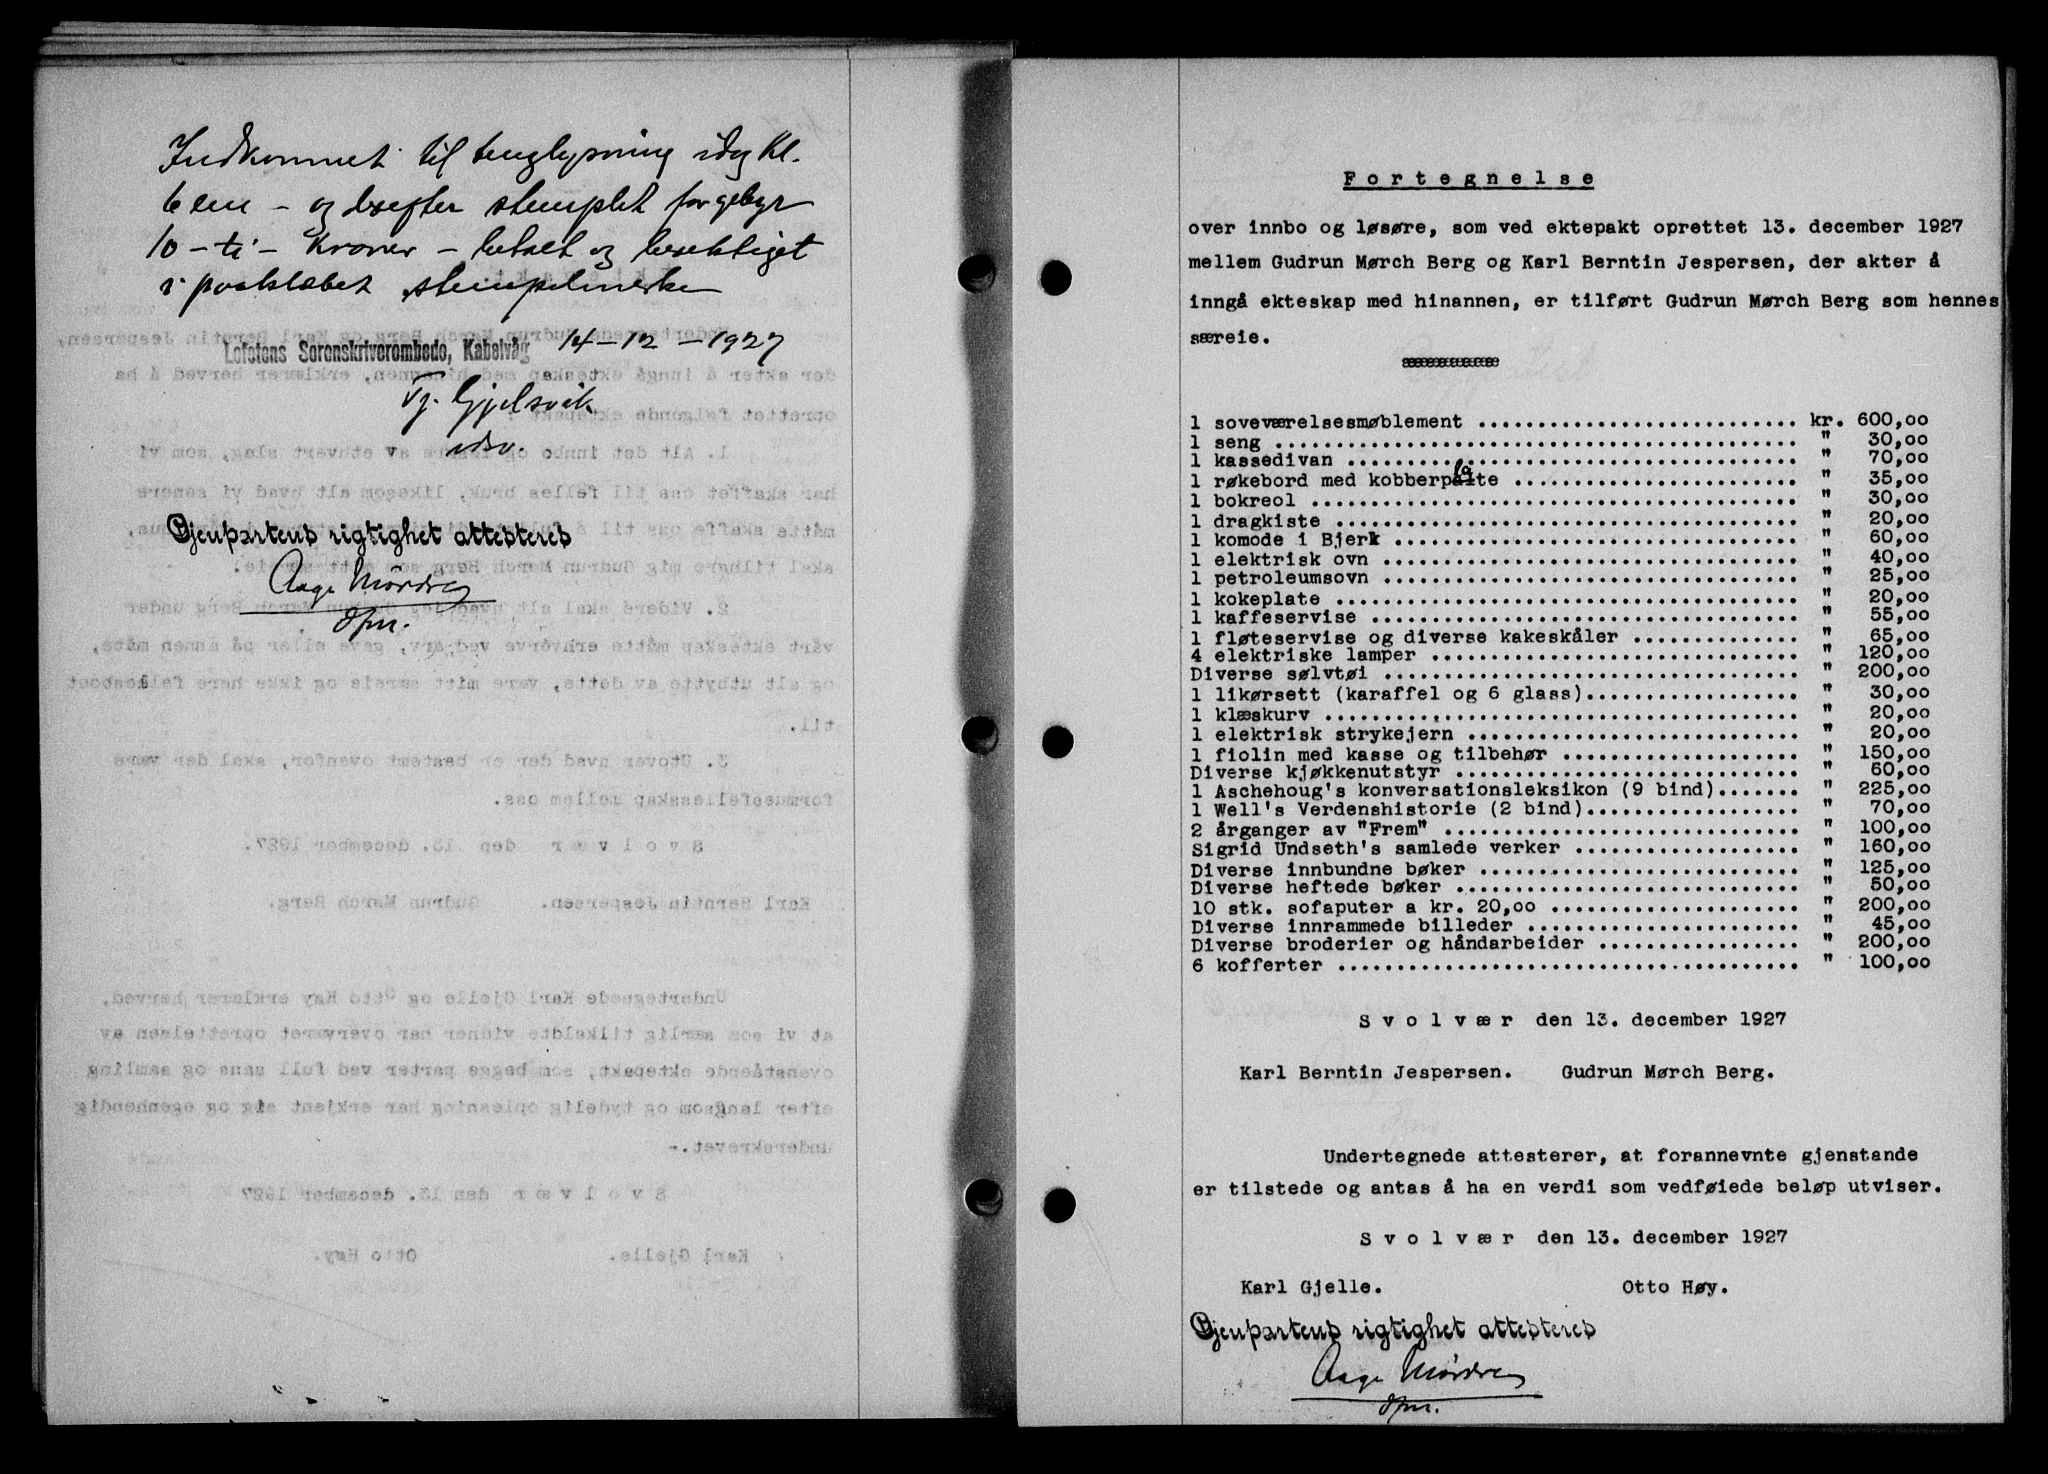 Indkommet til tinglysning idag kl.
6 em – og derefter stemplet for gebyr
10 – ti – Kroner – betalt og besiktiget
i paaklæbet stempelmerke
Lofotens Sorenskriverembede, Kabelvåg 14-12-1927
Tj. Gjelsvik
edsv.
Gjenpartens rigtighet attesteres
Aage Mördre
Spm.
Fortegnelse
over innbo og løsøre, som ved ektepakt oprettet 13. december 1927
mellem Gudrun Mørch Berg og Karl Berntin Jespersen, der akter å
inngå ekteskap med hinannen, er tilført Gudrun Mørch Berg som hennes
særeie.
1 soveværelsesmøblement ............................ kr. 600,00
1 seng ............................................ " 30,00
1 kassedivan ...................................... " 70,00
1 røkebord med kobberplate ........................ " 35,00
1 bokreol ......................................... " 30,00
1 dragkiste ....................................... " 20,00
1 komode i Bjerk .................................. " 60,00
1 elektrisk ovn ................................... " 40,00
1 petroleumsovn ................................... " 25,00
1 kokeplate ....................................... " 20,00
1 kaffeservise .................................... " 55,00
1 fløteservise og diverse kakeskåler .............. " 65,00
4 elektriske lamper ............................... " 120,00
Diverse sølvtøi ................................... " 200,00
1 likørsett (karaffel og 6 glass).................. " 30,00
1 klæskurv ........................................ " 20,00
1 elektrisk strykejern ............................ " 20,00
1 fiolin med kasse og tilbehør .................... " 150,00
Diverse kjøkkenutstyr ............................. " 60,00
1 Aschehoug's konversationsleksikon (9 bind)....... " 225,00
1 Well's Verdenshistorie (2 bind).................. " 70,00
2 årganger av "Frem" .............................. " 100,00
Sigrid Undseth's samlede verker ................... " 160,00
Diverse innbundne bøker ........................... " 125,00
Diverse heftede bøker ............................. " 50,00
10 stk. sofaputer a kr. 20,00 ..................... " 200,00
Diverse innrammede billeder ....................... " 45,00
Diverse broderier og håndarbeider ................. " 200,00
6 kofferter ....................................... " 100,00
Svolvær den 13. december 1927
Karl Berntin Jespersen. Gudrun Mørch Berg.
Undertegnede attesterer, at forannevnte gjenstande
er tilstede og antas å ha en verdi som vedføiede beløp utviser.
Svolvær den 13. december 1927
Karl Gjelle. Otto Høy.
Gjenpartens rigtighet attesteres
Aage Mördre
Spm.